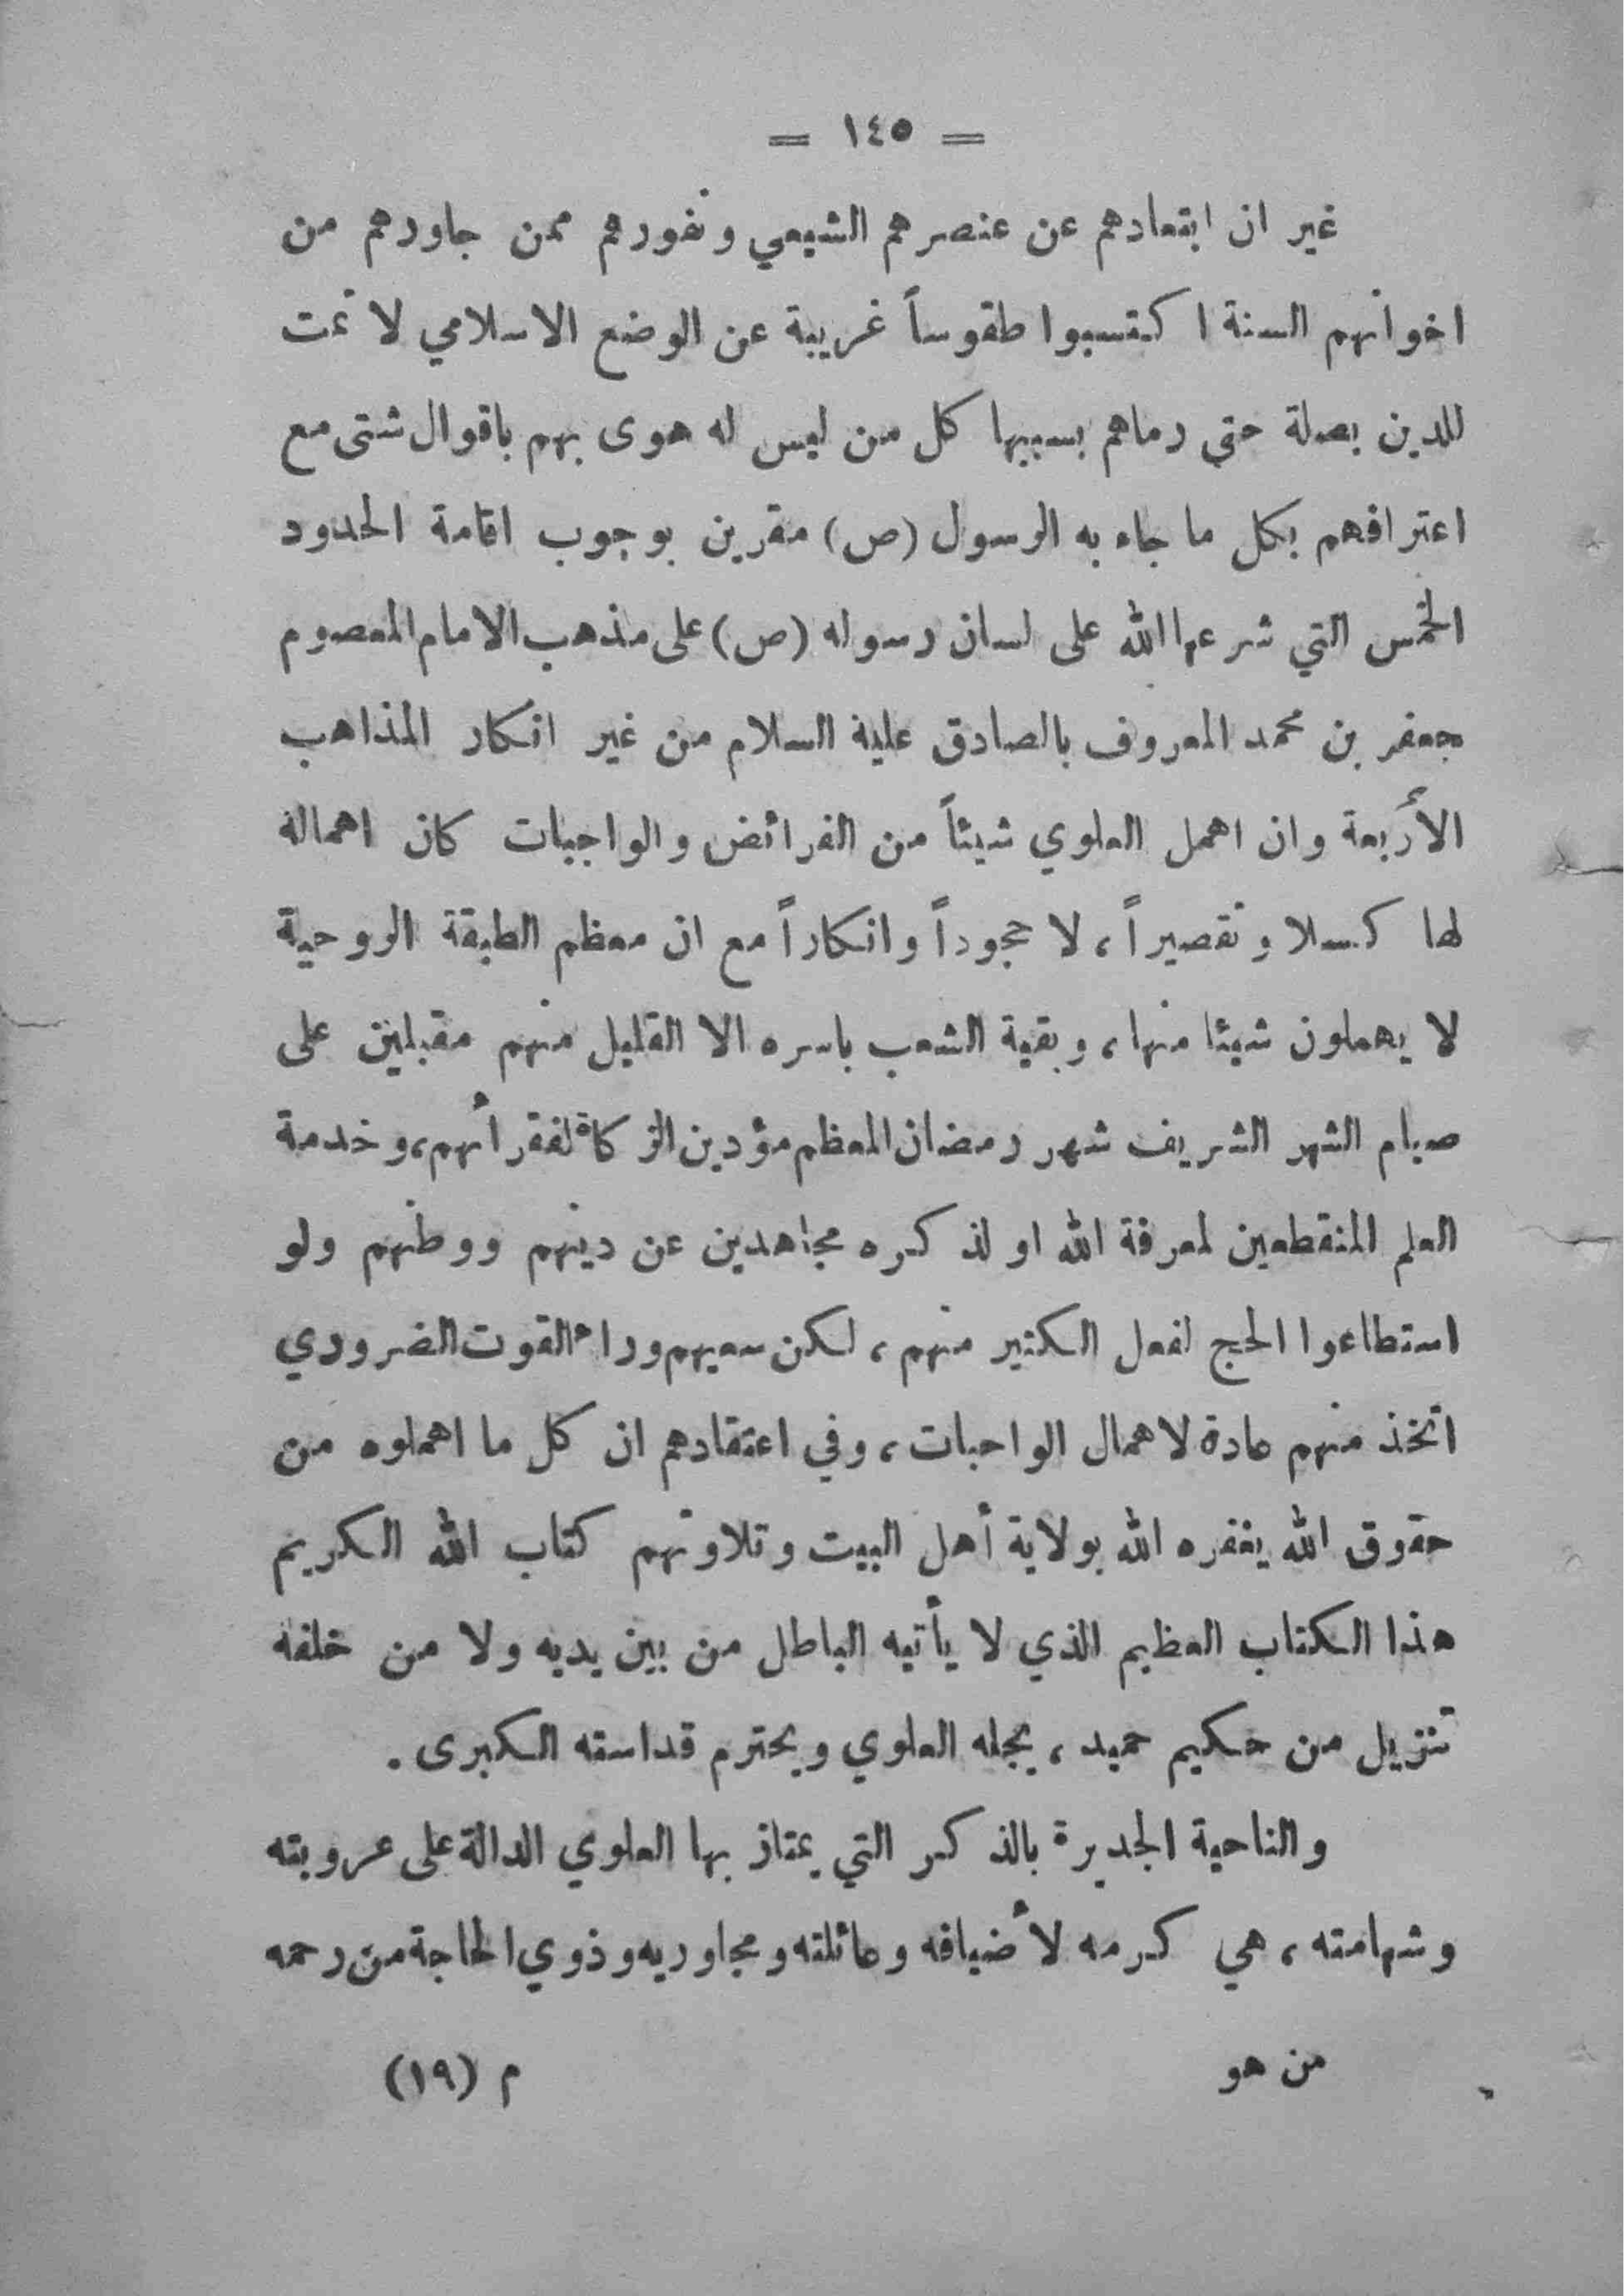 = ١٤٥ =
غير ان ابتعادهم عن عنصرهم الشيعي ونفورهم ممن جاورهم من
اخوانهم السنة اكتسبوا طقوساً غريبة عن الوضع الاسلامي لا تمت
للدين بصلة حتى رماهم بسببها كل من ليس له هوى بهم باقوال شتى مع
اعترافهم بكل ما جاء به الرسول (ص) مقرين بوجوب اقامة الحدود
الخمس التي شرعها الله على لسان رسوله (ص) على مذهب الامام المعصوم
جعفر بن محمد المعروف بالصادق عليه السلام من غير انكار المذاهب
الأربعة وان اهمل العلوي شيئاً من الفرائض والواجبات كان اهماله
لها كسلا وتقصيراً، لا جحوداً وانكاراً مع ان معظم الطبقة الروحية
لا يهملون شيئا منها، وبقية الشعب باسره الا القليل منهم مقبلين على
صيام الشهر الشريف شهر رمضان المعظم مؤدين الزكاة لفقرائهم، وخدمة
العلم المنقطعين لمعرفة الله او لذكره مجاهدين عن دينهم ووطنهم ولو
استطاعوا الحج لفعل الكثير منهم، لكن سعيهم وراء القوت الضروري
اتخذ منهم عادة لاهمال الواجبات، وفي اعتقادهم ان كل ما اهملوه من
حقوق الله يغفره الله بولاية أهل البيت وتلاوتهم كتاب الله الكريم
هذا الكتاب العظيم الذي لا يأتيه الباطل من بين يديه ولا من خلفه
تنزيل من حكيم حميد، يجله العلوي ويحترم قداسته الكبرى.
والناحية الجديرة بالذكر التي يمتاز بها العلوي الدالة على عروبته
وشهامته، هي كرمه لأضيافه وعائلته ومجاوريه وذوي الحاجة من رحمه
من هو م (١٩)